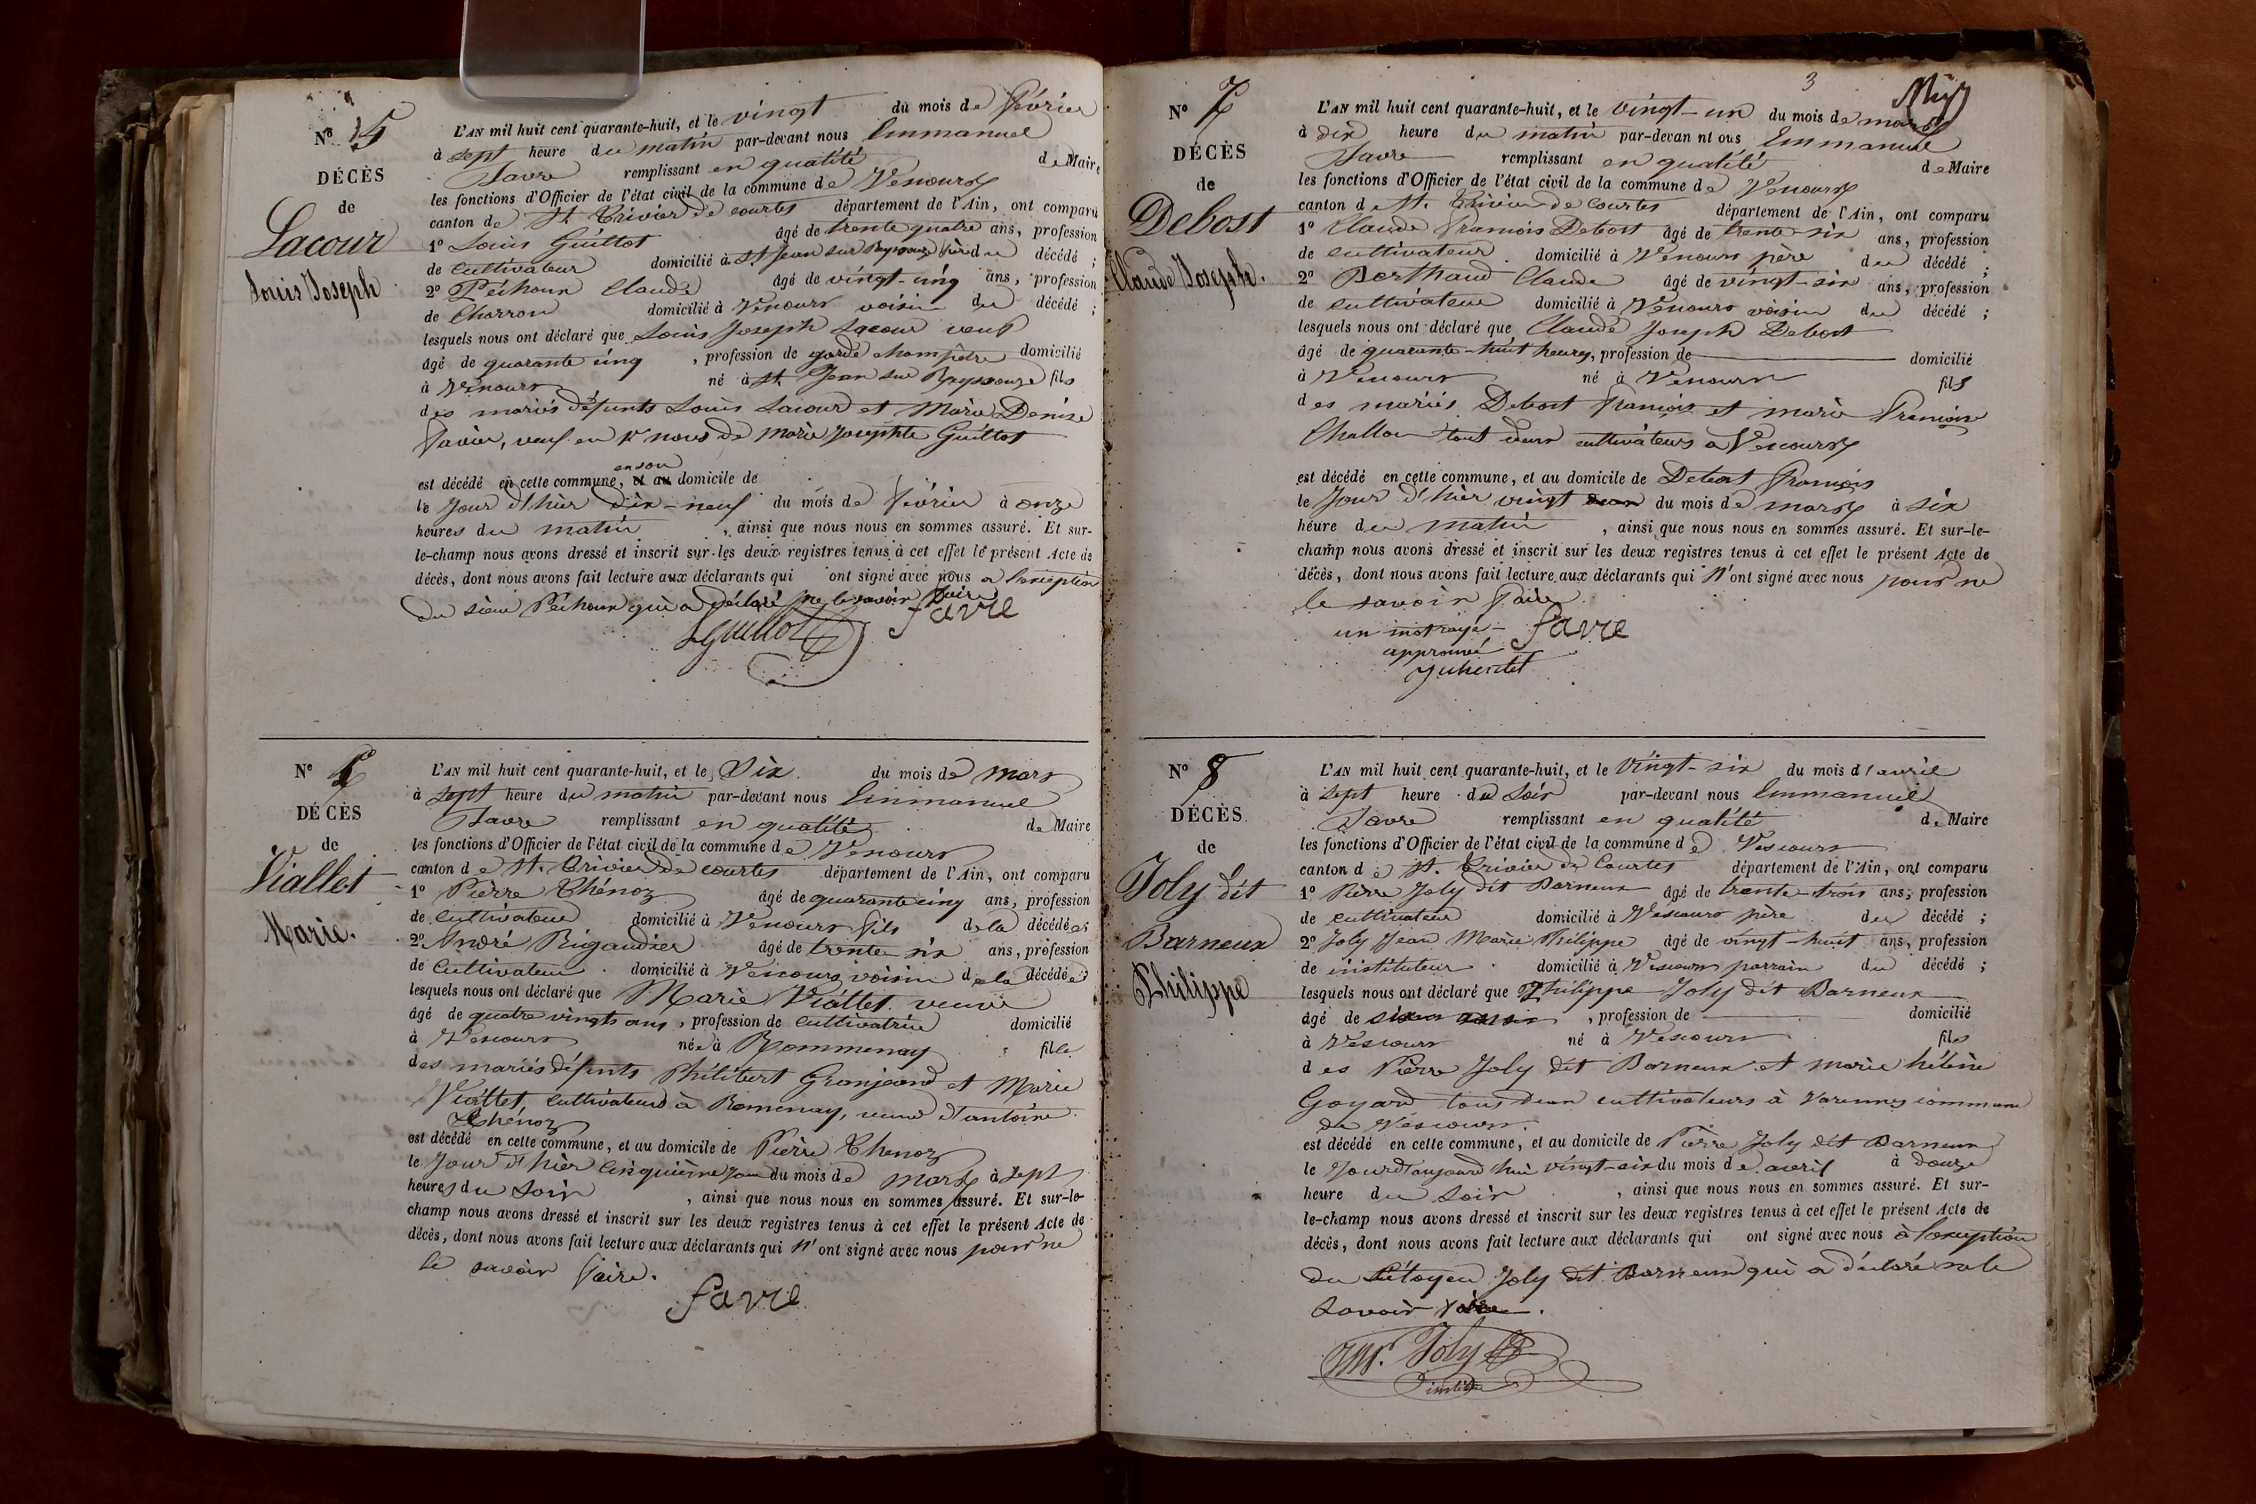 N° 5
DÉCÈS
de
Lacour
Louis Joseph
L'AN mil huit cent quarante-huit, et le vingt du mois de février
à sept heure du matin par-devant nous Emmanuel
Favre remplissant en qualité de Maire
les fonctions d'Officier de l'état civil de la commune de Vescours
canton de St. Trivier de courtes département de l'Ain, ont comparu
1° Louis Guillot âgé de trente quatre ans, profession
de cultivateur domicilié à St Jean sur Reyssouze du décédé ;
2° Péchoux Claude âgé de vingt-cinq ans, profession
de Charron domicilié à Vescours voisin du décédé ;
lesquels nous ont déclaré que Louis Joseph Lacour veuf
âgé de quarante cinq , profession de garde champêtre domicilié
à Vescours né à St Jean sur Reyssouze fils
des mariés défunts Louis Lacour et Marie Denise
Favier, veuf en noces de Marie Josephte Guillot
est décédé en cette commune, et au en son domicile de
le Jour d'hier dix-neuf du mois de février à onze
heures du matin , ainsi que nous nous en sommes assuré. Et sur-
le-champ nous avons dressé et inscrit sur les deux registres tenus à cet effet le présent Acte de
décès, dont nous avons fait lecture aux déclarants qui ont signé avec nous a l'exception
du sieur Péchoux qui a déclaré ne le savoir faire
LGuillot Favre
N° 6
DÉCÈS
de
Viallet
Marie.
L'AN mil huit cent quarante-huit, et le Six du mois de mars
à sept heure du matin par-devant nous Emmanuel
Favre remplissant en qualité de Maire
les fonctions d'Officier de l'état civil de la commune de Vescours
canton de St. Trivier de courtes département de l'Ain, ont comparu
1° Pierre Thénoz âgé de quarante cinq ans, profession
de cultivateur domicilié à Vescours fils de la décédée ;
2° André Rigaudier âgé de trente six ans, profession
de Cultivateur domicilié à Vescours voisin de la décédée ;
lesquels nous ont déclaré que Marie Viallet veuve
âgé de quatre vingts ans , profession de cultivatrice domicilié
à Vescours née à Rommenay fille
des mariés défunts Philibert Granjeand et Marie
Viallet cultivateurs à Romenay, veuve d'antoine
Thénoz
est décédé en cette commune, et au domicile de Pierre Thenoz
le Jour d'hier cinquième jour du mois de mars à sept
heures du soir , ainsi que nous nous en sommes assuré. Et sur-le-
champ nous avons dressé et inscrit sur les deux registres tenus à cet effet le présent Acte de
décès, dont nous avons fait lecture aux déclarants qui n'ont signé avec nous pour ne
le savoir faire.
Favre
3
N° 7
DÉCÈS
de
Debost
Claude Joseph.
L'AN mil huit cent quarante-huit, et le vingt-un du mois de mars
à dix heure du matin par-devan nt ous Emmanuel
Favre remplissant en qualité de Maire
les fonctions d'Officier de l'état civil de la commune de Vescours
canton de St. Trivier de Courtes département de l'Ain, ont comparu
1° Claude François Debost âgé de trente-six ans, profession
de cultivateur domicilié à Vescours père du décédé ;
2° Berthaud Claude âgé de vingt-six ans, profession
de cultivateur domicilié à Vescours voisin du décédé ;
lesquels nous ont déclaré que Claude Joseph Debost
âgé de quarante-huit heures, profession de domicilié
à Vescours né à Vescours fils
des mariés Debost françois et marie Françoise
Challon tout deux cultivateurs a Vescours
est décédé en cette commune, et au domicile de Debost françois
le Jour d'hier vingt du mois de mars à six
héure du matin , ainsi que nous nous en sommes assuré. Et sur-le-
champ nous avons dressé et inscrit sur les deux registres tenus à cet effet le présent Acte de
décès, dont nous avons fait lecture aux déclarants qui n'ont signé avec nous pour ne
le savoir faire
un mot rayé Favre
approuvé
N° 8
DÉCÈS
de
Joly dit
Barneux
Philippe
L'AN mil huit cent quarante-huit, et le vingt-six du mois d'avril
à sept heure du Soir par-devant nous Emmanuel
Favre remplissant en qualité de Maire
les fonctions d'Officier de l'état civil de la commune de Vescours
canton de St. Trivier de Courtes département de l'Ain, ont comparu
1° Pierre Joly dit Barneux âgé de trente-trois ans, profession
de cultivateur domicilié à Vescours père du décédé ;
2° Joly Jean Marie Philippe âgé de vingt-huit ans, profession
de instituteur domicilié à Vescours parrain du décédé ;
lesquels nous ont déclaré que Philippe Joly dit Barneux
âgé de , profession de domicilié
à Vescours né à Vescours fils
des Pierre Joly dit Barneux et marie hélène
Goyard tous deux cultivateurs à Varennes commune
de Vescours
est décédé en cette commune, et au domicile de Pierre Joly dit Barneux
le Jour d'aujourd'hui vingt-six du mois de avril à douze
heure du Soir , ainsi que nous nous en sommes assuré. Et sur-
le-champ nous avons dressé et inscrit sur les deux registres tenus à cet effet le présent Acte de
décès, dont nous avons fait lecture aux déclarants qui ont signé avec nous à l'exception
du Citoyen Joly dit Barneux qui a déclaré ne le
savoir faire.
Joly